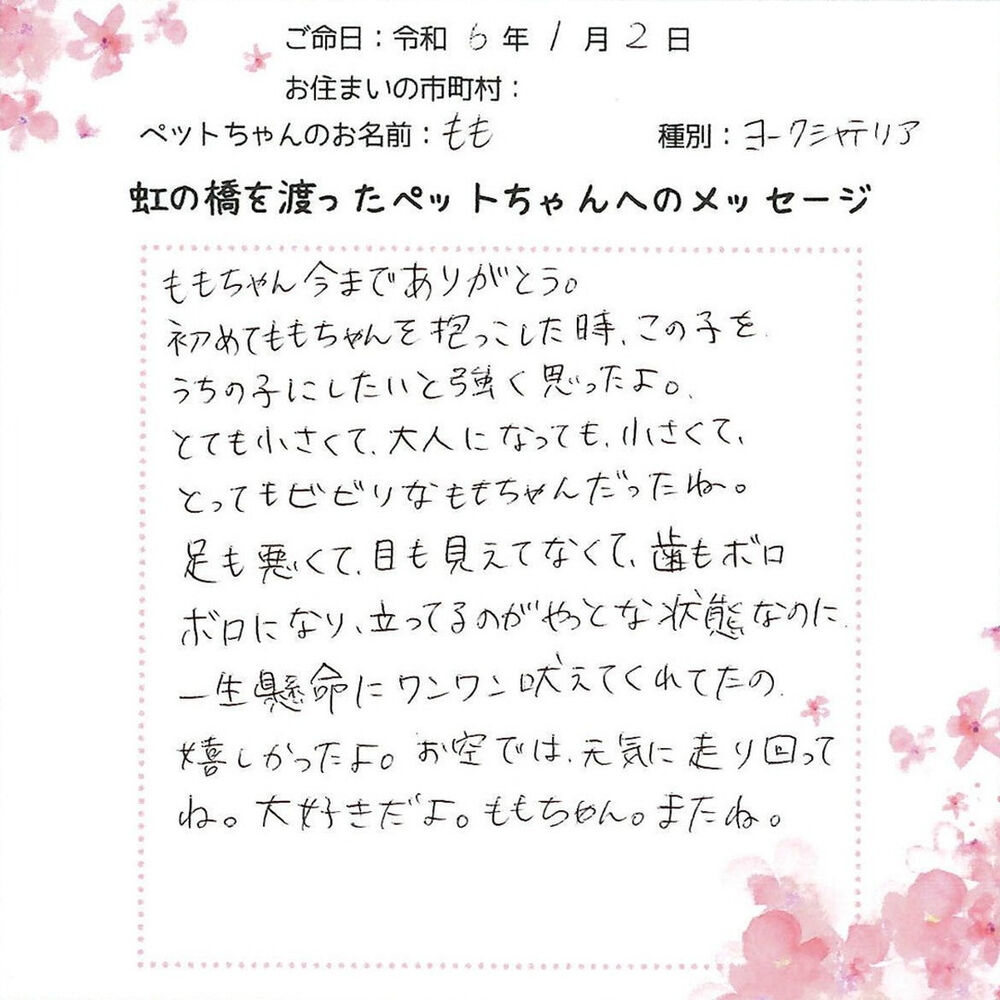 ご命日：令和 6 年 1 月 2 日
お住まいの市町村：
ペットちゃんのお名前：もも 種別：ヨークシャテリア
虹の橋を渡ったペットちゃんへのメッセージ
ももちゃん今までありがとう。
初めてももちゃんを抱っこした時、この子を
うちの子にしたいと強く思ったよ。
とても小さくて、大人になっても、小さくて、
とってもビビリなももちゃんだったね。
足も悪くて、目も見えてなくて、歯もボロ
ボロになり、立ってるのがやっとな状態なのに
一生懸命にワンワン吠えてくれてたの
嬉しかったよ。お空では、元気に走り回って
ね。大好きだよ。ももちゃん。またね。